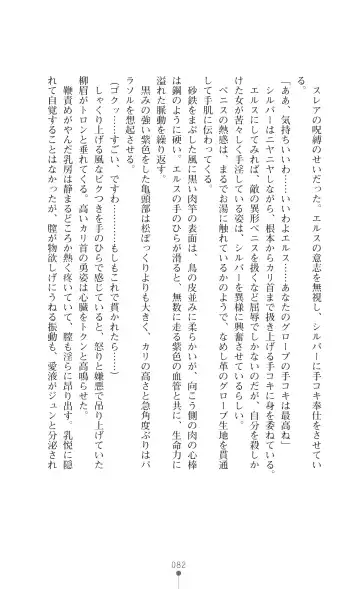 スレアの呪縛のせいだった。エルスの意志を無視し、シルバーに手コキ奉仕をさせてい
る。
「ああ、気持ちいいわ……いいわよエルス……あなたのグローブの手コキは最高ね」
シルバーはニヤニヤしながら、根本からカリ首まで扱き上げる手コキに身を委ねている。
エルスにしてみれば、敵の異形ペニスを扱くなど屈辱でしかないのだが、自分を殺しか
けた女が苦々しく手淫している姿は、シルバーを異様に興奮させているらしい。
ペニスの熱感は、まるでお湯に触れているかのようで、なめし革のグローブ生地を貫通
して手肌に伝わってくる。
砂鉄をまぶした風に黒い肉竿の表面は、鳥の皮並みに柔らかいが、向こう側の肉の心棒
は鋼のように硬い。エルスの手のひらが滑ると、無数に走る紫色の血管と共に、生命力に
溢れた脈動を繰り返す。
黒みの強い紫色をした亀頭部は松ぼっくりよりも大きく、カリの高さと急角度ぶりはパ
ラソルを想起させる。
（ゴクッ……すごい、ですわ…………もしもこれで貫かれたら……）
しゃくり上げる風なビクつきを手のひらで感じていると、怒りと嫌悪で吊り上げていた
柳眉がトロンと垂れてくる。高いカリ首の勇姿は心臓をトクンと高鳴らせた。
鞭責めがやんだ乳房は静まるどころか熱く疼いていて、膣も淫らに昂り出す。乳悦に隠
れて自覚することはなかったが、膣が物欲しげにうねる振動も、愛液がジュンと分泌され
082